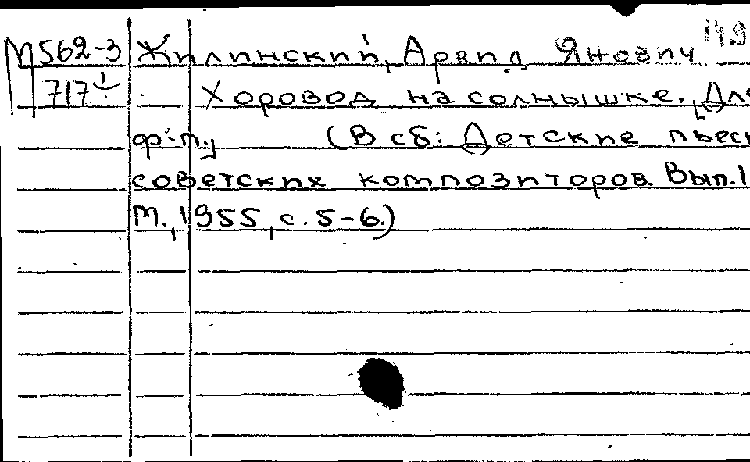 М562-3 Жилинский, Арвид Янович 149
717 Хоровод на солнышке. [Для
ф-п.] (В сб: Детские пьес
советских композиторов. Вып.1
М., 1955, с. 5-6.)